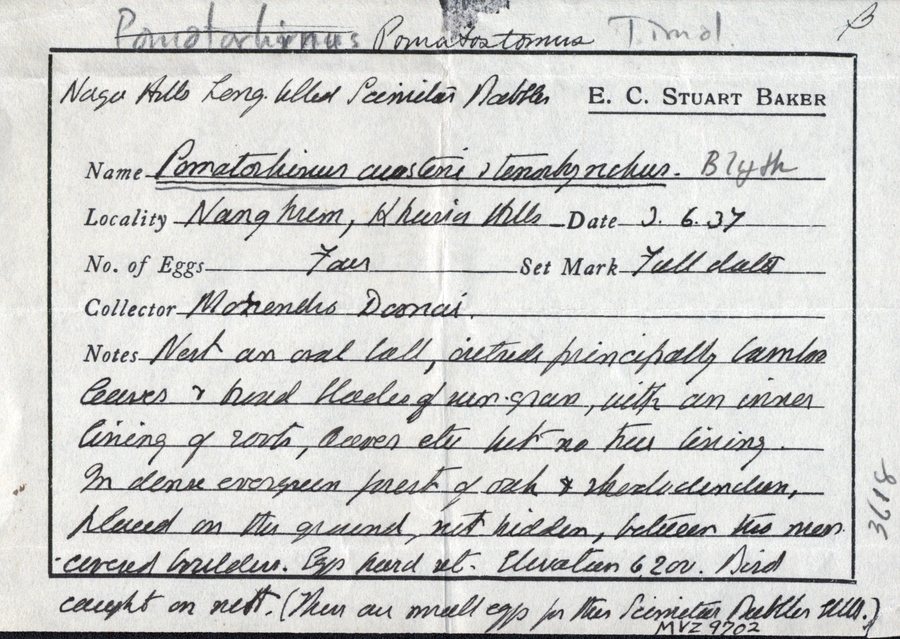 Pomatorhinus Pomatostomus Timal.
Naga Hills Long-billed Scimitar Babbler
E. C. STUART BAKER
Name Pomatorhinus austeni stenorhynchus. Blyth
Locality Nanghum, Khasia Hills Date 2. 6. 37
No. of Eggs Four Set Mark Full data
Collector Mohendro
Notes Nest an oval ball, outside principally bamboo
leaves & broad blades of sun-grass, with an inner
lining of roots, leaves etc but no true lining.
In dense evergreen forest of oak & rhododendron,
placed on the ground, not hidden, between two moss
covered boulders. Eggs hard set. Elevation 6,200. Bird
caught on nest. (These are small eggs for this Scimitar Babbler)
MVZ 9702
3618